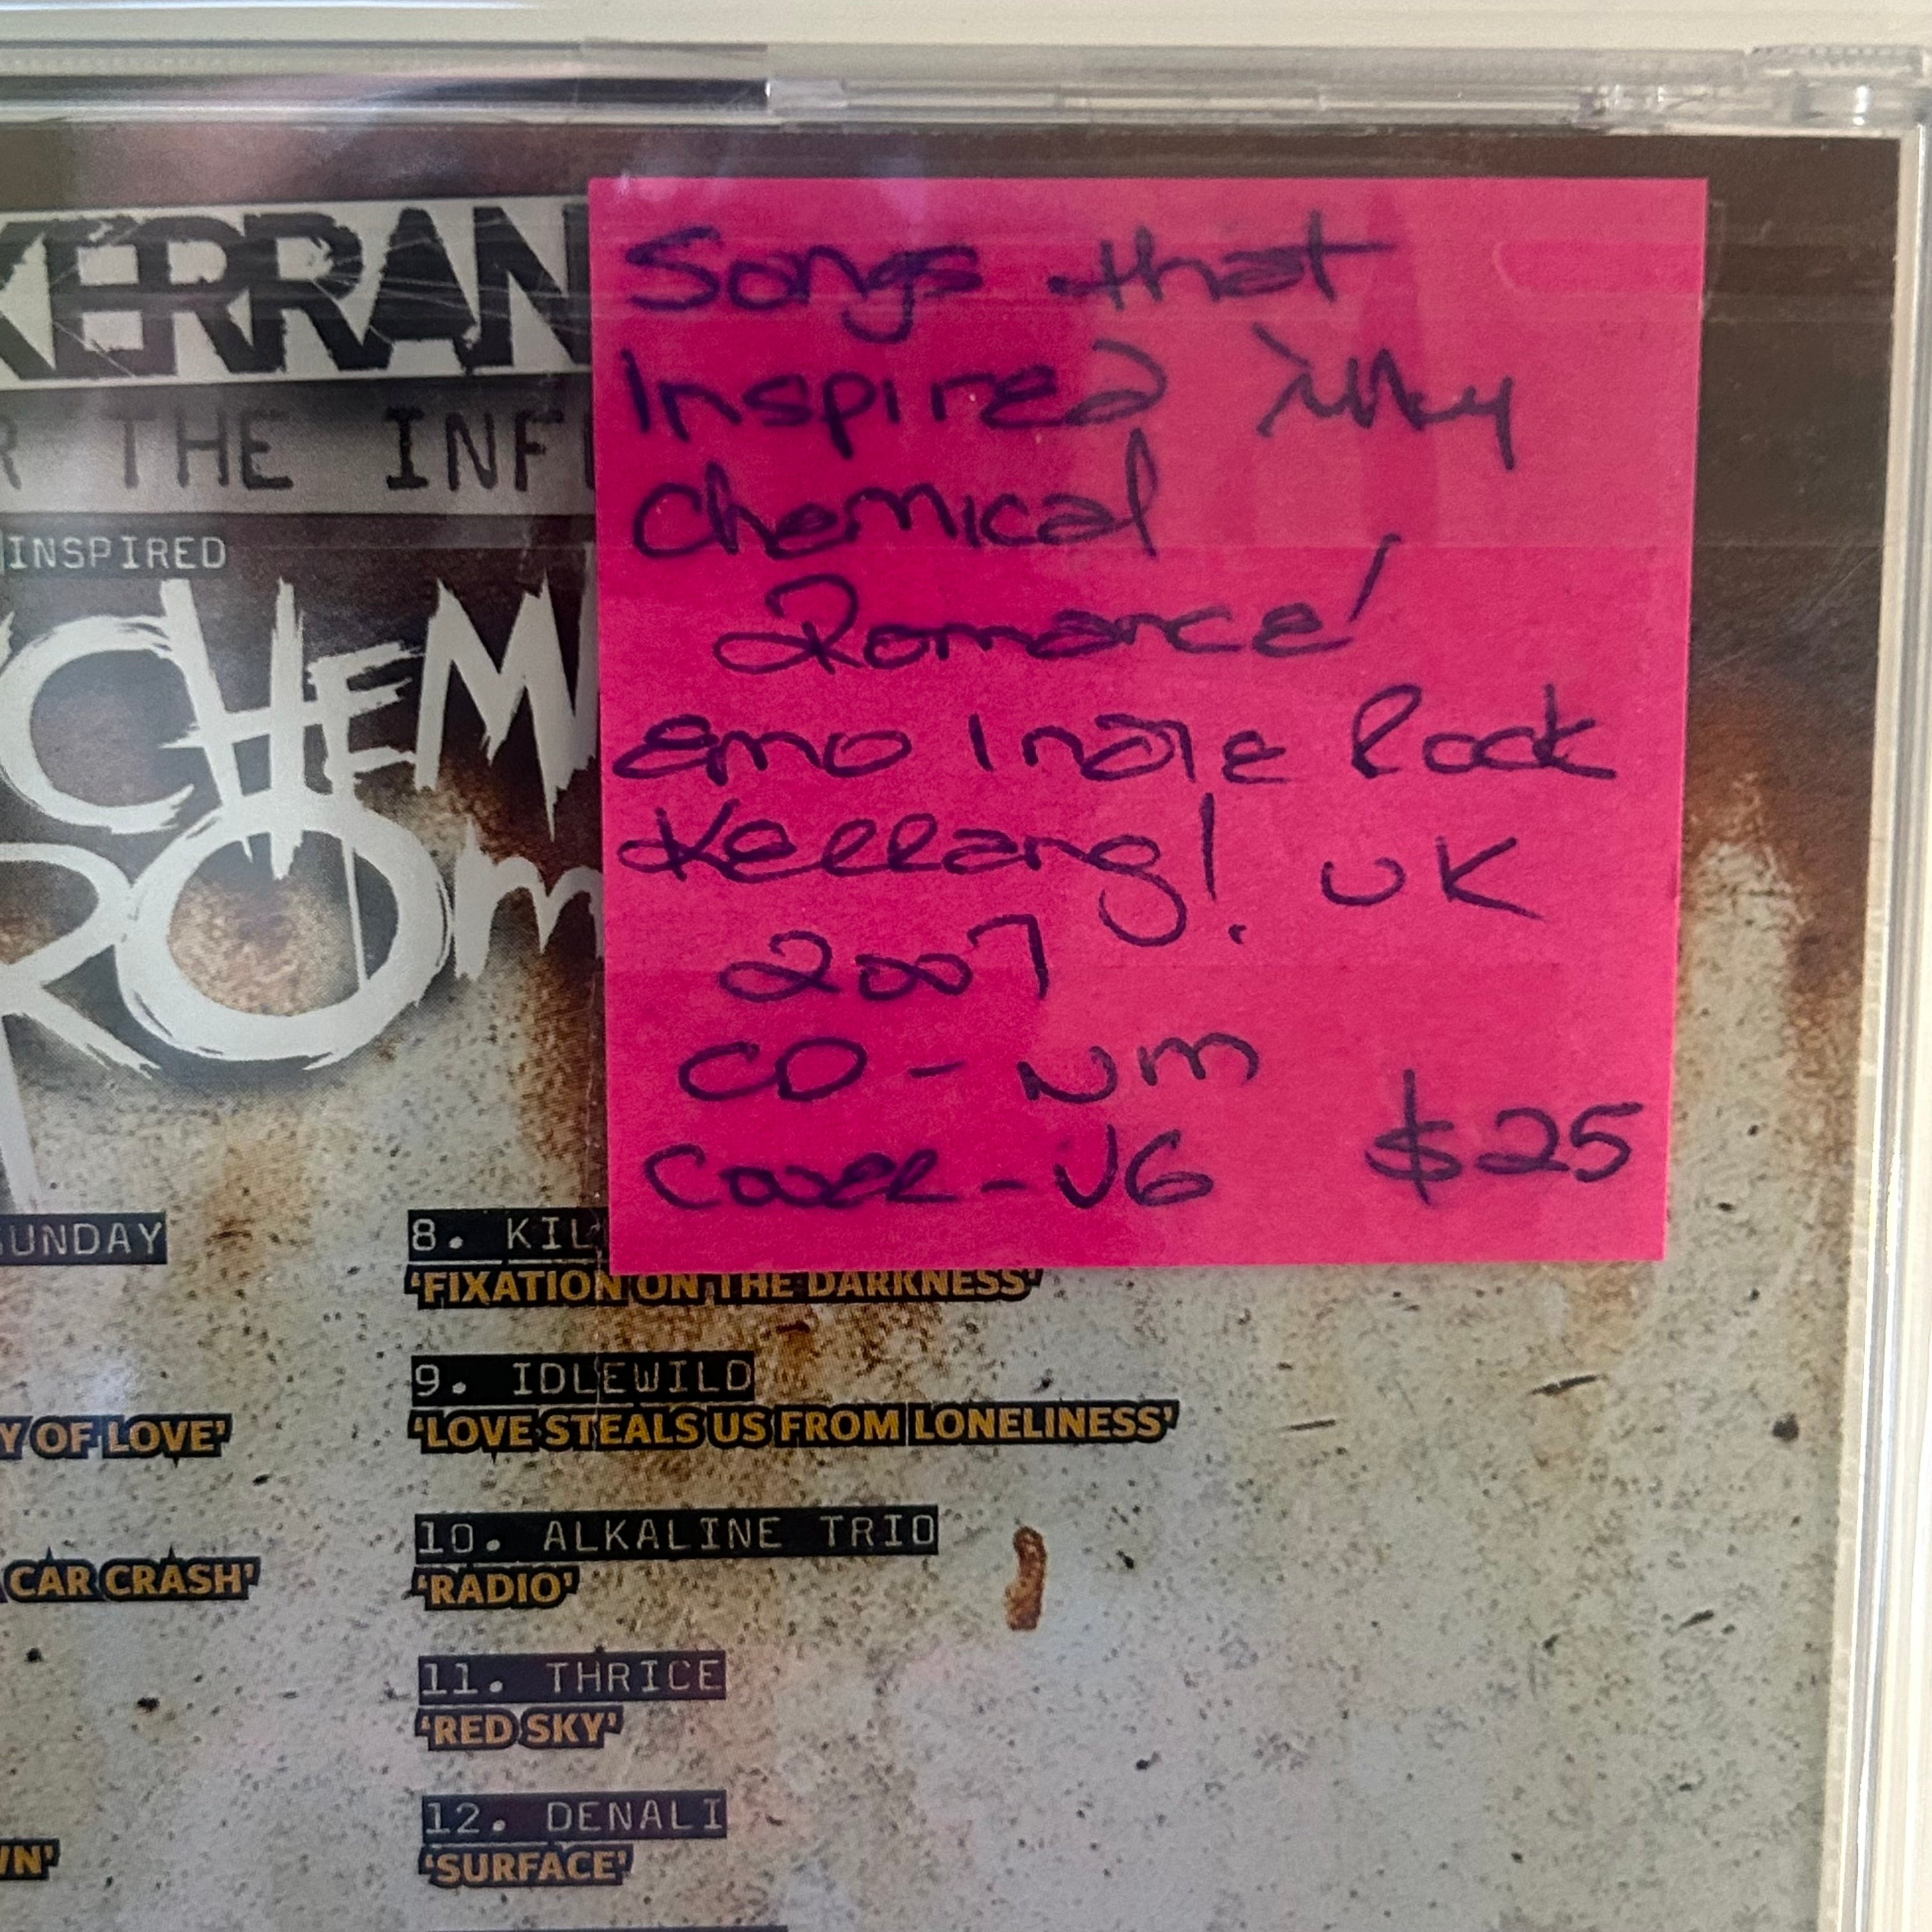 KERRAN
R THE INF
INSPIRED
CHEM
ROM
Songs that
Inspired My
Chemical
Romance'
emo Indie Rock
Kerrang! UK
2007
CD - NM
Cover - VG $25
SUNDAY
Y OF LOVE'
CAR CRASH'
WN'
8. KIL
'FIXATION ON THE DARKNESS'
9. IDLEWILD
'LOVE STEALS US FROM LONELINESS'
10. ALKALINE TRIO
'RADIO'
11. THRICE
'RED SKY'
12. DENALI
'SURFACE'